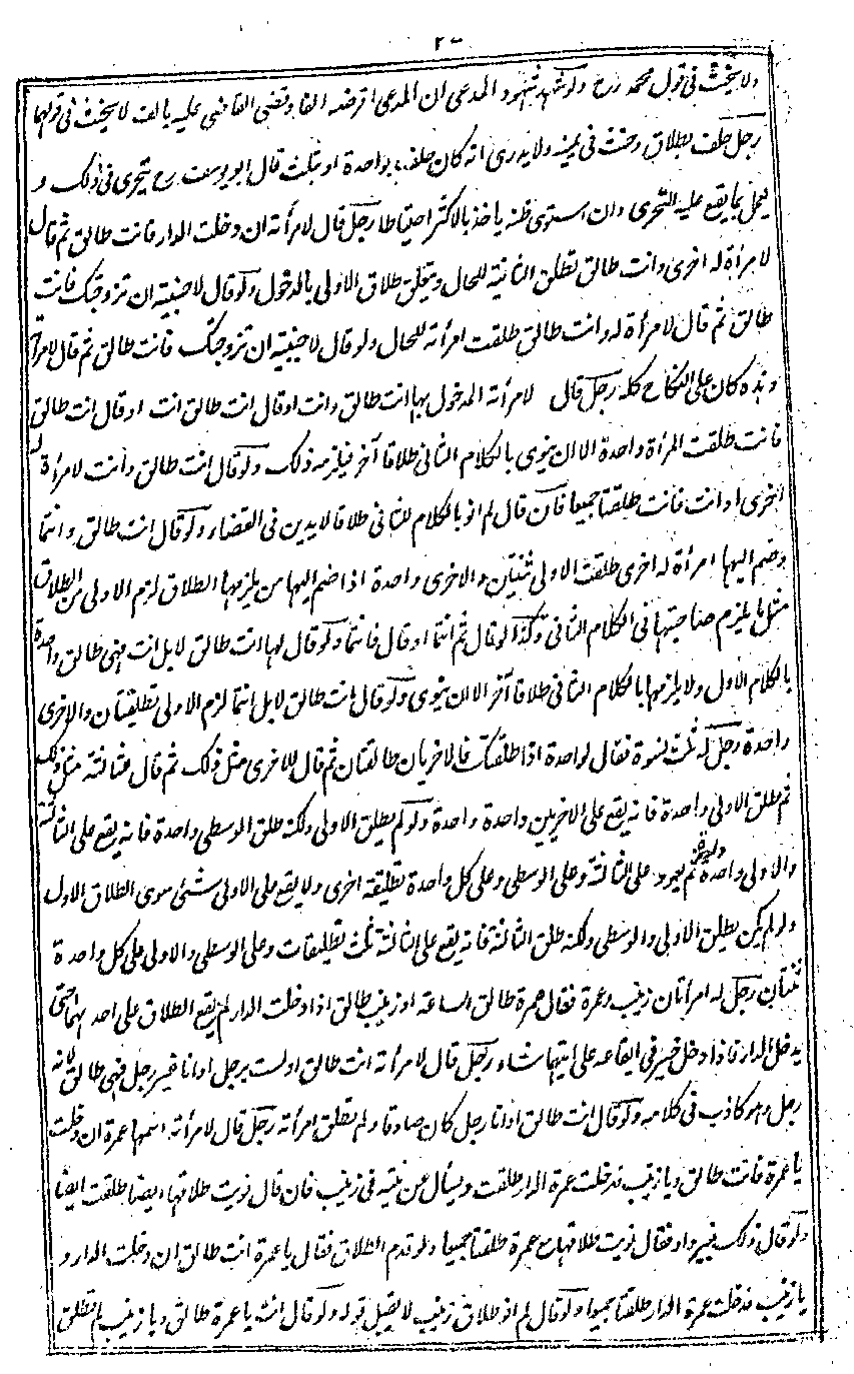 ولا يحنث في قول محمد رح ولو شهد شهود المدعى ان المدعى اقرضه الفا وقضى القاضى عليه بالف لا يحنث في قولهما
رجل حلف بطلاق وحنث فى يمينه ولا يدرى انه كان حلف بواحدة او بثلث قال ابو يوسف رح يتحرى فى ذلك و
يعمل بما يقع عليه التحرى وان استوى ظنه ياخذ بالاكثر احتياطا رجل قال لامرأته ان دخلت الدار فانت طالق ثم قال
لامرأة له اخرى وانت طالق تطلق الثانية للحال ويتعلق طلاق الاولى بالدخول ولو قال لاجنبية ان تزوجتك فانت
طالق ثم قال لامرأة له وانت طالق طلقت امرأته للحال ولو قال لاجنبية ان تزوجتك فانت طالق ثم قال لامرأته
وهذه كان على النكاح كله رجل قال لامرأته المدخول بها انت طالق وانت او قال انت طالق انت او قال انت طالق
فانت طلقت المرأة واحدة الا ان ينوى بالكلام الثانى طلاقا آخر فيلزمه ذلك ولو قال انت طالق وانت لامرأة له
اخرى او انت فانت طلقتا جميعا فان قال لم انو بالكلام الثانى طلاقا لا يدين فى القضاء ولو قال انت طالق وانتما
وضم اليها امرأة له اخرى طلقت الاولى ثنتين والاخرى واحدة اذا ضم اليها من يلزمها الطلاق لزم الاولى من الطلاق
مثل ما يلزم صاحبتها فى الكلام الثانى وكذا لو قال ثم انتما او قال فانتما ولو قال لها انت طالق لا بل انت فهى طالق واحدة
بالكلام الاول ولا يلزمها بالكلام الثانى طلاقا آخر الا ان ينوى ولو قال انت طالق لا بل انتما لزم الاولى تطليقتان والاخرى
واحدة رجل له ثلث نسوة فقال لواحدة اذا طلقتك فالاخريان طالقتان ثم قال للاخرى مثل ذلك ثم قال للثالثة مثل ذلك
ثم طلق الاولى واحدة فانه يقع على الاخريين واحدة واحدة ولو لم يطلق الاولى ولكنه طلق الوسطى واحدة فانه يقع على الثالثة
والاولى واحدة ثم يعود على الثالثة وعلى الوسطى وعلى كل واحدة تطليقة اخرى ولا يقع على الاولى شئ سوى الطلاق الاول
ولو لم يكن يطلق الاولى والوسطى ولكنه طلق الثالثة فانه يقع على الثالثة ثلث تطليقات وعلى الوسطى والاولى على كل واحدة
ثنتان رجل له امرأتان زينب وعمرة فقال عمرة طالق الساعة او زينب طالق اذا دخلت الدار لم يقع الطلاق على احدهما حتى
يدخل الدار فاذا دخل خير فى ايقاعه على ايتهما شاء رجل قال لامرأته انت طالق او لست برجل او انا غير رجل فهى طالق لانه
رجل وهو كاذب فى كلامه ولو قال انت طالق او انا رجل كان صادقا ولم تطلق امرأته رجل قال لامرأته اسمها عمرة ان دخلت
يا عمرة فانت طالق ويا زينب فدخلت عمرة الدار طلقت ويسأل عن نيته فى زينب فان قال نويت طلاقها ايضا طلقت ايضا
ولو قال ذلك بغير واو فقال نويت طلاقها مع عمرة طلقتا جميعا ولو قدم الطلاق فقال يا عمرة انت طالق ان دخلت الدار و
يا زينب فدخلت عمرة الدار طلقتا جميعا ولو قال لم انو طلاق زينب لا يقبل قوله ولو قال انت يا عمرة طالق ويا زينب لم تطلق